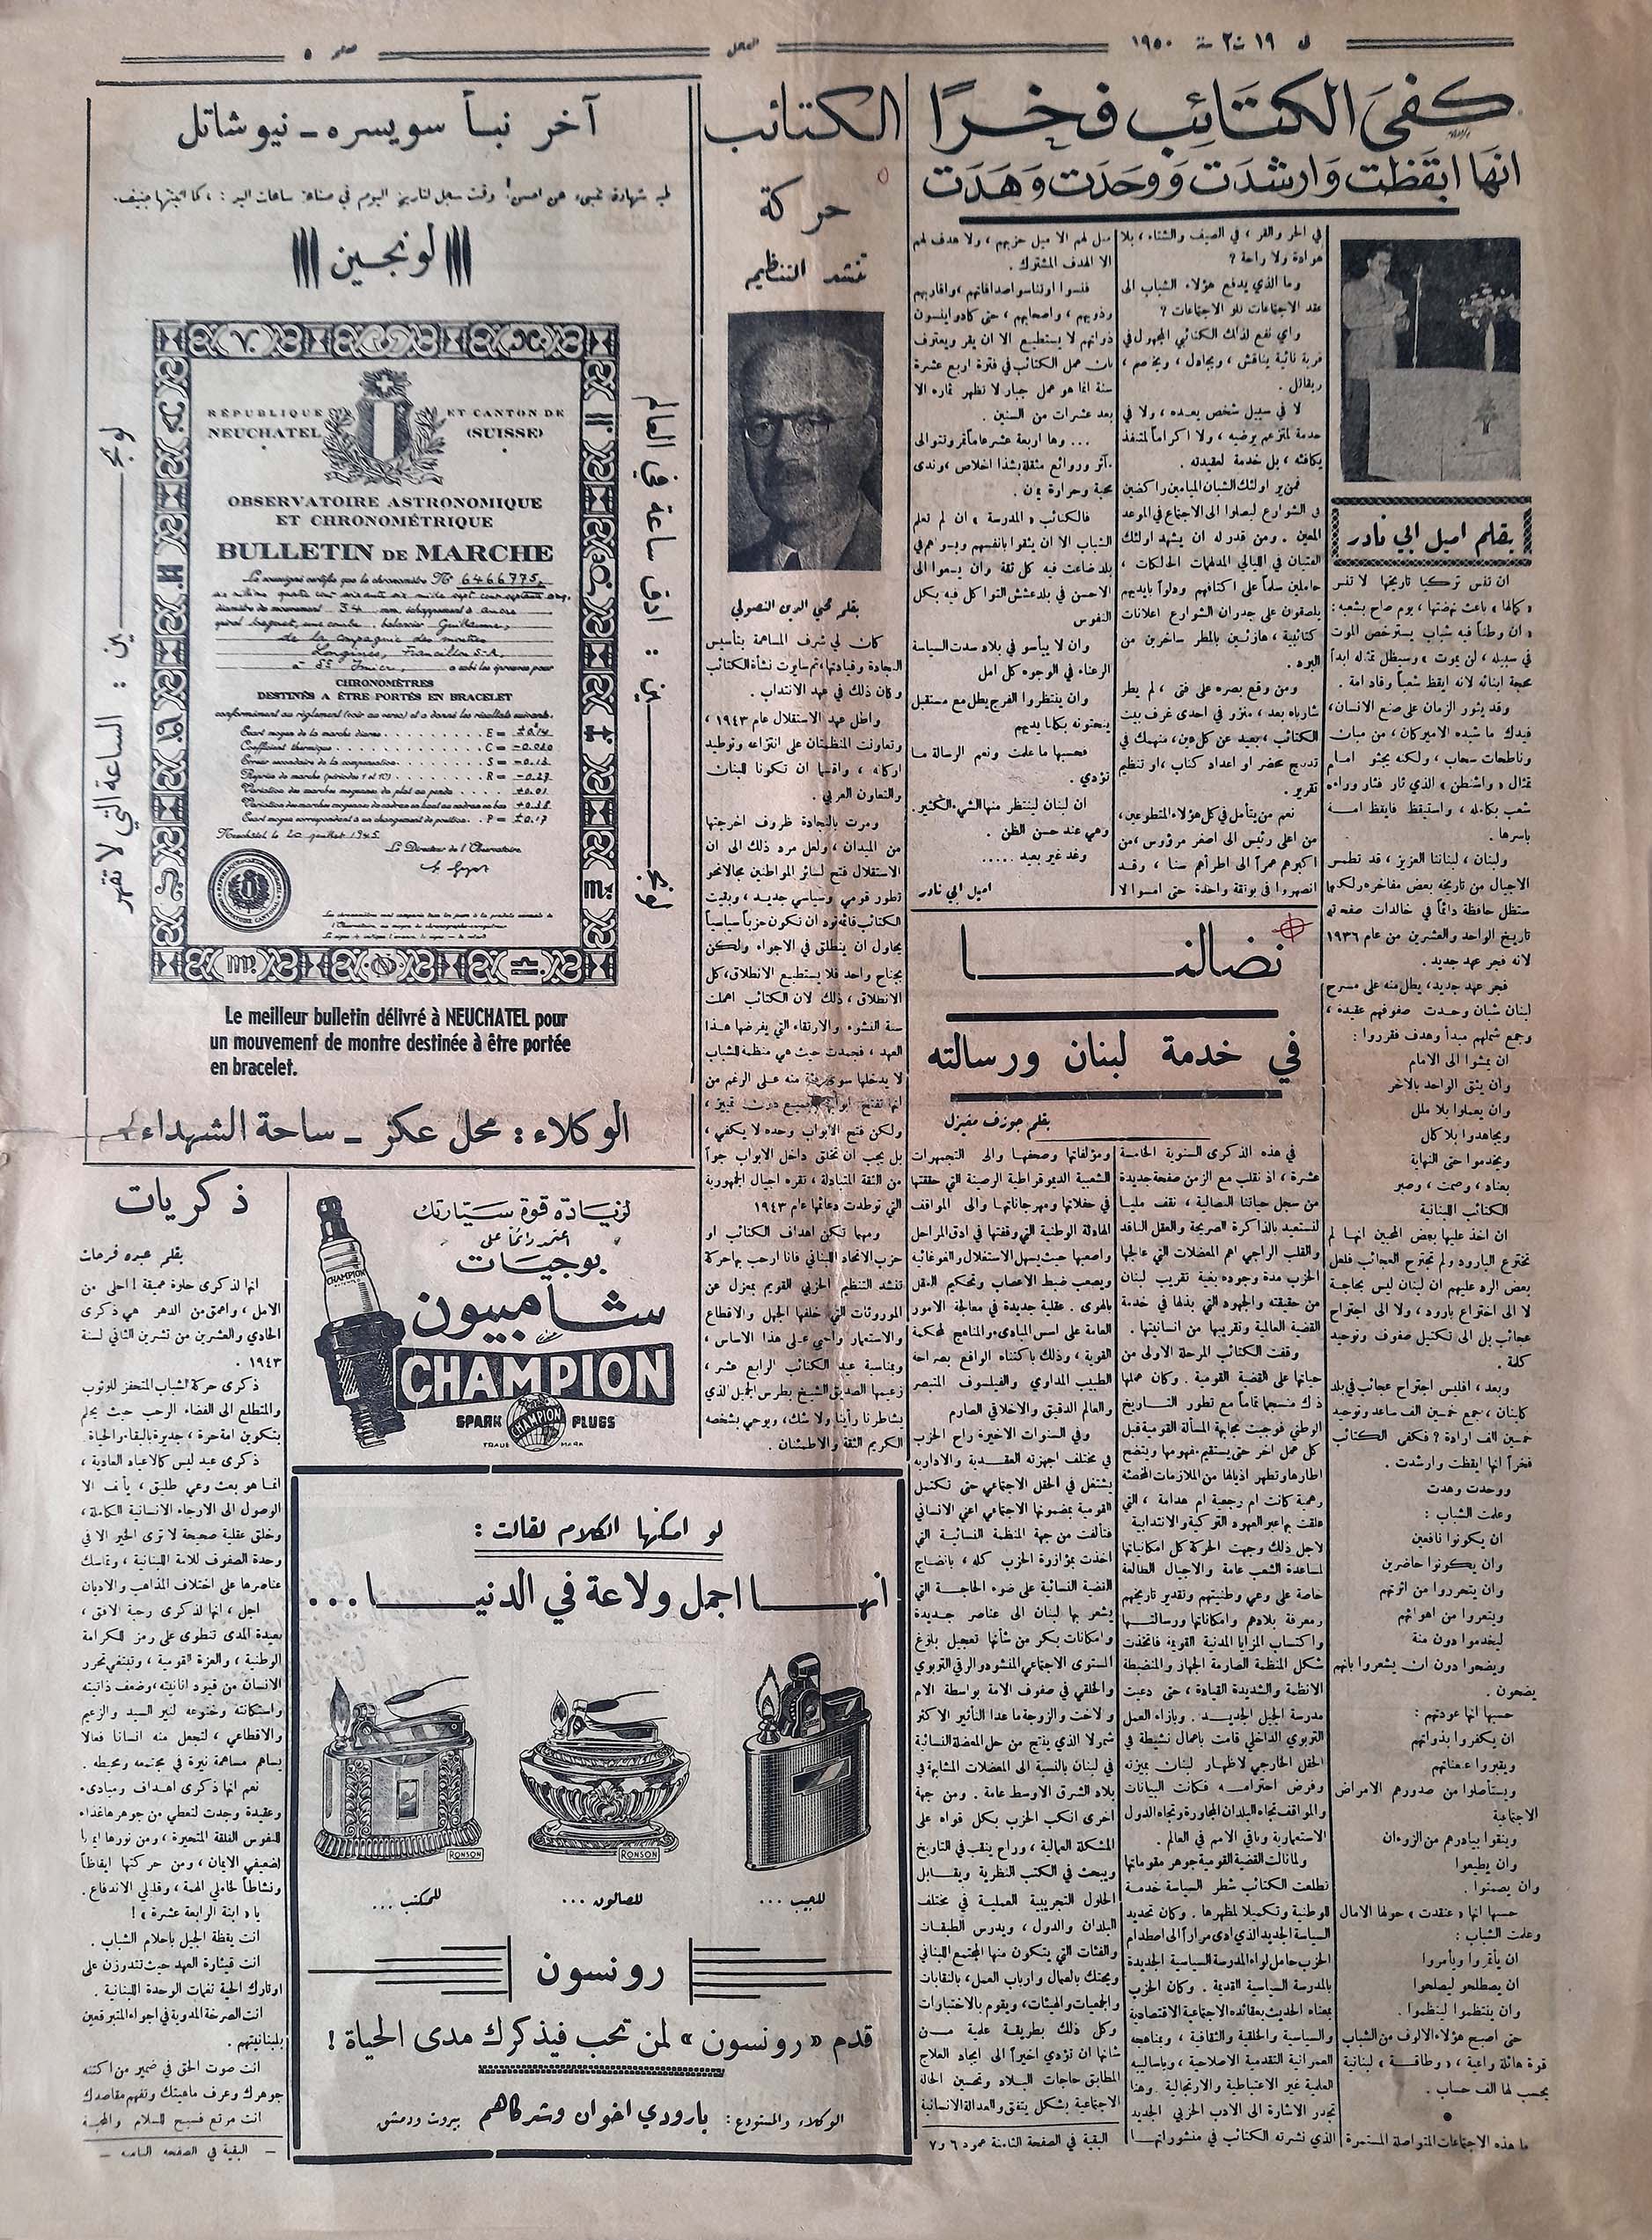 في ١٩ ت٢ سنة ١٩٥٠
العمل
صفحة ٥
كفى الكتائب فخرًا
انها ايقظت وارشدت ووحدت وهدت
بقلم اميل ابي نادر
ان تنس تركيا تاريخها لا تنس
«كمالها» باعث نهضتها، يوم صاح بشعبه:
«ان وطناً فيه شباب يسترخص الموت
في سبيله، لن يموت» وسيظل تمثاله ابداً
محجة ابنائه لانه ايقظ شعباً وقاد امة.
وقد يثور الزمان على صنع الانسان،
فيدك ما شيده الاميركان، من مبان
وناطحات سحاب، ولكنه يجثو امام
تمثال «واشنطن» الذي ثار فثار وراءه
شعب بكامله، واستيقظ فايقظ امة
باسرها.
ولبنان، لبناننا العزيز، قد تطمس
الاجيال من تاريخه بعض مفاخره ولكنها
ستظل حافظة دائماً في خالدات صفحاته
تاريخ الواحد والعشرين من عام ١٩٣٦
لانه فجر عهد جديد.
فجر عهد جديد، يطل منه على مسرح
لبنان شبان وحدت صفوفهم عقيدة،
وجمع شملهم مبدأ وهدف فقرروا:
ان يمشوا الى الامام
وان يثق الواحد بالآخر
وان يعملوا بلا ملل
ويجاهدوا بلا كلل
ويخدموا حتى النهاية
بعناد، وصمت، وصبر
الكتائب اللبنانية
ان اخذ عليها بعض المحبين انها لم
تخترع البارود ولم تجترح العجائب فلعل
بعض الرد عليهم ان لبنان ليس بحاجة
لا الى اختراع بارود، ولا الى اجتراح
عجائب بل الى تكتيل صفوف وتوحيد
كلمة.
وبعد، افليس اجتراح عجائب في بلد
كلبنان، جمع خمسين الف ساعد وتوحيد
خمسين الف ارادة؟ فكفى الكتائب
فخراً انها ايقظت وارشدت.
ووحدت وهدت
وعلمت الشباب:
ان يكونوا نافعين
وان يكونوا حاضرين
وان يتحرروا من انويتهم
ويتعروا من اهوائهم
ليخدموا دون منة
ويضحوا دون ان يشعروا بانهم
يضحون.
حسبها انها عودتهم:
ان يكفروا بذواتهم
ويقبروا
ويستأصلوا من صدورهم الامراض
الاجتماعية
وينقوا بيادرهم من الزوءان
وان يطيعوا
وان يصمتوا.
حسبها انها «عنقدت» حولها الآمال
وعلمت الشباب:
ان يأتمروا ويأمروا
ان يصطلحوا ليصلحوا
وان ينتظموا لينظموا.
حتى اصبح هؤلاء الالوف من الشباب
قوة هائلة واعية، «وطاقة» لبنانية
يحسب لها الف حساب.
ما هذه الاجتماعات المتواصلة المستمرة
في الحر والقر، في الصيف والشتاء، بلا
هوادة ولا راحة؟
وما الذي يدفع هؤلاء الشباب الى
عقد الاجتماعات تلو الاجتماعات؟
واي نفع لذلك الكتائبي المجهول في
قرية نائية يناقش، ويجادل، ويخاصم،
ويقاتل.
لا في سبيل شخص يعبده، ولا في
خدمة لمتزعم يرضيه، ولا اكراماً لمتنفذ
يكافئه، بل خدمة لعقيدته.
فمن ير اولئك الشبان الميامين راكضين
في الشوارع ليصلوا الى الاجتماع في الموعد
المعين. ومن قدر له ان يشهد اولئك
الفتيان في الليالي المدلهمات الحالكات،
حاملين سلماً على اكتافهم ودلواً بايديهم
يلصقون على جدران الشوارع اعلانات
كتائبية، هازئين بالمطر ساخرين من
البرد.
ومن وقع بصره على فتى، لم يطر
شارباه بعد، منزو في احدى غرف بيت
الكتائب، بعيد عن كل عين، منهمك في
تدبيج محضر او اعداد كتاب، او تنظيم
تقرير.
نعم من يتأمل في كل هؤلاء المتطوعين،
من اعلى رئيس الى اصغر مرؤوس، من
اكبرهم عمراً الى اطرأهم سنا، وقد
انصهروا في بوتقة واحدة حتى امسوا لا
ميل لهم الا ميل حزبهم، ولا هدف لهم
الا الهدف المشترك.
فنسوا او تناسوا صداقاتهم، واقاربهم
وذويهم، واصحابهم، حتى كادوا ينسون
ذواتهم لا يستطيع الا ان يقر ويعترف
بان عمل الكتائب في فترة اربع عشرة
سنة انما هو عمل جبار لا تظهر ثماره الا
بعد عشرات من السنين.
... وها اربعة عشر عاماً تمر وتتوالى
مآثر وروائع مثقلة بشذا اخلاص، وندى
محبة وحرارة يمان.
فالكتائب «المدرسة» ان لم تعلم
الشباب الا ان يثقوا بانفسهم وبسواهم في
بلد ضاعت فيه كل ثقة وان يسعوا الى
الاحسن في بلد عشش التواكل فيه بكل
النفوس
وان لا ييأسو في بلاد سدت السياسة
الرعناء في الوجوه كل امل
وان ينتظروا الفرج يطل مع مستقبل
ينحتونه بكلتا يديهم
فحسبها ما علمت ونعم الرسالة ما
تؤدي.
ان لبنان لينتظر منها الشيء الكثير.
وهي عند حسن الظن.
وغد غير بعيد.....
اميل ابي نادر
نضالنا
في خدمة لبنان ورسالته
بقلم جوزف مغبزل
في هذه الذكرى السنوية الخامسة
عشرة، اذ نقلب مع الزمن صفحة جديدة
من سجل حياتنا النضالية، نقف مليا
لنستعيد بالذاكرة الصريحة والعقل الناقد
والقلب الراجي اهم المعضلات التي عالجها
الحزب مدة وجوده بغية تقريب لبنان
من حقيقته والجهود التي بذلها في خدمة
القضية العالمية وتقريبها من انسانيتها.
وقفت الكتائب المرحلة الاولى من
حياتها على القضية القومية. وكان عملها
ذاك منسجماً تماماً مع تطور التاريخ
الوطني فوجبت مجابهة المسألة القومية قبل
كل عمل آخر حتى يستقيم مفهومها ويتضح
اطارها وتطهر اذيالها من الملازمات المخصئة
رهمية كانت ام رجعية ام هدامة، التي
علقت بها عبر العهود التركية والانتدابية
لاجل ذلك وجهت الحركة كل امكانياتها
لمساعدة الشعب عامة والاجيال الطالعة
خاصة على وعي وطنيتهم وتقدير تاريخهم
ومعرفة بلادهم وامكاناتها ورسالتها
واكتساب المزايا المدنية القويمة فاتخذت
شكل المنظمة الصارمة الجهاز والمنضبطة
الانظمة والشديدة القيادة، حتى دعيت
مدرسة الجيل الجديد. وبازاء العمل
التربوي الداخلي قامت باعمال نشيطة في
الحقل الخارجي لاظهار لبنان بميزته
وفرض احترامه فكانت البيانات
والمواقف تجاه البلدان المجاورة وتجاه الدول
الاستعمارية وباقي الامم في العالم.
ولما نالت القضية القومية جوهر مقوماتها
تطلعت الكتائب شطر السياسة خدمة
للوطنية وتكميلا لمظهرها. وكان تحديد
السياسة الجديد الذي ادى مراراً الى اصطدام
الحزب حامل لواء المدرسة السياسية الجديدة
بالمدرسة السياسية القديمة. وكان الحزب
بمعناه الحديث بعقائده الاجتماعية الاقتصادية
والسياسية والخلقية والثقافية، ومناهجه
العمرانية التقدمية الاصلاحية، وباساليبه
العلمية غير الاعتباطية والارتجالية وهنا
تجدر الاشارة الى الادب الحزبي الجديد
الذي نشرته الكتائب في منشوراتها
ومؤلفاتها وصحفها والى التجمهرات
الشعبية الديموقراطية الرصينة التي حققتها
في حفلاتها ومهرجاناتها والى المواقف
الهادئة الوطنية التي وقفتها في ادق المراحل
واصعبها حيث يسهل الاستغلال والغوغائية
ويصعب ضبط الاعصاب وتحكيم العقل
بالهوى. عقلية جديدة في معالجة الامور
العامة على اسس المبادىء والمناهج المحكمة
القوية، وذلك باكتناه الواقع بصراحة
الطبيب المداوي والفيلسوف المتبصر
والعالم الدقيق والاخلاقي الصارم
وفي السنوات الاخيرة راح الحزب
في مختلف اجهزته العقدية والادارية
يشتغل في الحقل الاجتماعي حتى تكتمل
القومية بمضمونها الاجتماعي اعني الانساني
فتألفت من جهة المنظمة النسائية التي
اخذت بمؤازرة الحزب كله، بانضاج
القضية النسائية على ضوء الحاجة التي
يشعر بها لبنان الى عناصر جديدة
وامكانات بكر من شأنها تعجيل بلوغ
المستوى الاجتماعي المنشود والرقي التربوي
والخلقي في صفوف الامة بواسطة الام
والاخت والزوجة ما عدا التأثير الاكثر
شمولا الذي ينتج من حل المعضلة النسائية
في لبنان بالنسبة الى المعضلات المشابهة في
بلاد الشرق الاوسط عامة. ومن جهة
اخرى انكب الحزب بكل قواه على
المشكلة العمالية، وراح ينقب في التاريخ
ويبحث في الكتب النظرية ويقابل
الحلول التجريبية العملية في مختلف
البلدان والدول، ويدرس الطبقات
والفئات التي يتكون منها المجتمع اللبناني
ويحتك بالعمال وارباب العمل، بالنقابات
والجمعيات والهيئات، ويقوم بالاختبارات
وكل ذلك بطريقة علمية من
شانها ان تؤدي اخيراً الى ايجاد العلاج
المطابق حاجات البلاد وتحسين الحالة
الاجتماعية بشكل يتفق والعدالة الانسانية
البقية في الصفحة الثامنة عمود ٦ و٧
الكتائب
حركة
تنشد التنظيم
بقلم محيي الدين النصولي
كان لي شرف المساهمة بتأسيس
النجادة وقيادتها، ثم سايرت نشأة الكتائب
وكان ذلك في عهد الانتداب.
واطل عهد الاستقلال عام ١٩٤٣،
وتعاونت المنظمتان على انتزاعه وتوطيد
اركانه، واقسمتا ان تكونا للبنان
والتعاون العربي.
ومرت بالنجادة ظروف اخرجتها
من الميدان، ولعل مرد ذلك الى ان
الاستقلال فتح لسائر المواطنين مجالا نحو
تطور قومي وسياسي جديد، وبقيت
الكتائب قائمة تود ان تكون حزباً سياسياً
يحاول ان ينطلق في الاجواء ولكن
بجناح واحد فلا يستطيع الانطلاق، كل
الانطلاق، ذلك لان الكتائب اهملت
سنة النشوء والارتقاء التي يفرضها هذا
العهد، فجمدت حيث هي منظمة للشباب
لا يدخلها سوى فئة منه على الرغم من
انها تفتح ابوابها للجميع دون تمييز،
ولكن فتح الابواب وحده لا يكفي،
بل يجب ان تخلق داخل الابواب جواً
من الثقة المتبادلة، تقره اجيال الجمهورية
التي توطدت دعائمها عام ١٩٤٣
ومهما تكن اهداف الكتائب او
حزب الاتحاد اللبناني فانا ارحب بها حركة
تنشد التنظيم الحزبي القويم بمعزل عن
الموروثات التي خلفها الجهل والاقطاع
والاستعمار واحيي على هذا الاساس،
وبمناسبة عيد الكتائب الرابع عشر،
زعيمها الصديق الشيخ بطرس الجميل الذي
يشاطرنا رأينا ولا شك، ويوحي بشخصه
الكريم الثقة والاطمئنان.
آخر نبأ سويسره - نيوشاتل
لونجين
لونجين: ادق ساعة في العالم
لونجين: الساعة التي لا تقهر
RÉPUBLIQUE ET CANTON DE
NEUCHATEL (SUISSE)
OBSERVATOIRE ASTRONOMIQUE
ET CHRONOMÉTRIQUE
BULLETIN DE MARCHE
Le soussigné certifie que le chronomètre No 6466775
six millions quatre cent soixante six mille sept cent septante cinq.
diamètre du mouvement 34 mm, échappement à ancre
spiral Breguet, une courbe, balancier Guillaume,
de la Compagnie des montres
Longines, Francillon S.A.
à St Imier, a subi les épreuves pour
CHRONOMÈTRES
DESTINÉS A ÊTRE PORTÉS EN BRACELET
conformément au règlement (voir au verso) et a donné les résultats suivants.
Ecart moyen de la marche diurne E = ±0.14
Coefficient thermique C = -0.020
Erreur secondaire de la compensation S = -0.13
Reprise de marche (périodes 1 et 10) R = -0.27
Variation des marches moyennes du plat au pendu +0.01
Variation des marches moyennes de cadran en haut au cadran en bas +0.38
Ecart moyen correspondant à un changement de position P = ±0.17
Neuchâtel le 20 juillet 1945
Le Directeur de l'Observatoire
Le meilleur bulletin délivré à NEUCHATEL pour
un mouvement de montre destinée à être portée
en bracelet.
الوكلاء: محل عكر - ساحة الشهداء
ذكريات
بقلم عبده فرحات
انها لذكرى حلوة عميقة! احلى من
الامل، واعمق من الدهر هي ذكرى
الحادي والعشرين من تشرين الثاني لسنة
١٩٤٣.
ذكرى حركة الشباب المتحفز للوثوب
والمتطلع الى الفضاء الرحب حيث يحلم
بتكوين امة حرة، جديرة بالبقاء والحياة
ذكرى عيد ليس كالاعياد العادية،
انما هو بعث وعي طليق، يأنف الا
الوصول الى الارجاء الانسانية الكاملة،
وخلق عقلية صحيحة لا ترى الخير الا في
وحدة الصفوف للامة اللبنانية، وتماسك
عناصرها على اختلاف المذاهب والاديان
اجل، انها لذكرى رحبة الافق،
بعيدة المدى تنطوي على رمز للكرامة
الوطنية، والعزة القومية، وتبتغي تحرر
الانسان من قيود انانيته، وضعف ذاتيته
واستكانته وخنوعه لنير السيد والزعيم
والاقطاعي، لتجعل منه انسانا فعالا
يساهم مساهمة نيرة في مجتمعه ومحيطه.
نعم انها ذكرى اهداف ومبادىء
وعقيدة وجدت لتعطي من جوهرها غذاء
للنفوس القلقة المتحيرة، ومن نورها ايمانا
لضعيفي الايمان، ومن حركتها ايقاظاً
ونشاطاً لخاملي الهمة، وقليلي الاندفاع.
يا «ابنة الرابعة عشرة»!
انت يقظة الجيل باحلام الشباب.
انت قيثارة العهد حيث تندوزن على
اوتارك الحية نغمات الوحدة اللبنانية.
انت الصرخة المدوية في اجواء المتبرقعين
بلبنانيتهم.
انت صوت الحق في ضمير من اكتنه
جوهرك وعرف ماهيتك وتفهم مقاصدك
انت مرتع فسيح للسلام والمحبة
- البقية في الصفحة الثامنة -
لزيادة قوة سيارتك
اعتمد دائماً على
بوجيات
شامبيون
CHAMPION
CHAMPION
SPARK CHAMPION PLUGS
TRADE MARK
لو امكنها الكلام لقالت:
انها اجمل ولاعة في الدنيا...
RONSON
RONSON
للجيب...
للصالون...
للمكتب...
رونسون
قدم «رونسون» لمن تحب فيذكرك مدى الحياة!
الوكلاء والمستودع: بارودي اخوان وشركاهم بيروت ودمشق